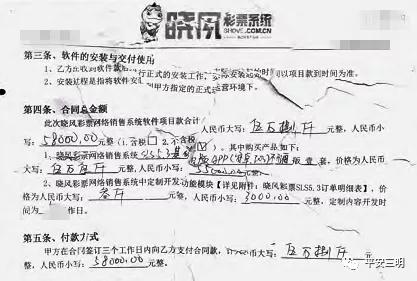 晓风彩票系统
WWW.SHOVE.COM
第三条、软件的安装与交付使用
1、乙方在收到软件款后 行正式的安装工作, 际安装起的时间以项目款到时间为准。
2、安装过程是指将软件安 到甲方指定的正式 运营环境下。
第四条、合同总金额
此次晓风彩票网络销售系统软件项目款合计 人民币大写: 伍万捌仟 元整,人民币小
写: 58000.00 元整(1.含税 2.不含税 )。其中购买产品如下:
1、晓风彩票网络销售系统 SLS5.3 版APP 版 壹 套,价格为人民币
大写: 伍万伍仟 元整,人民币小写: 55000.00 元整。
2、晓风彩票网络销售系统中定制开发 功能模块【详见附件:晓风彩票SLS5.3订单明细表】,价
格为人民币大写: 叁仟 元整,人民币小写: 3000.00 元整,定制内容开发时
间为 作日。
第五条、付款方式
甲方在合同签订三个工作日内向乙方支付合同款, 人民币大写: 伍万捌仟 元
整,人民币小写: 58000.00 元整。
平安三明